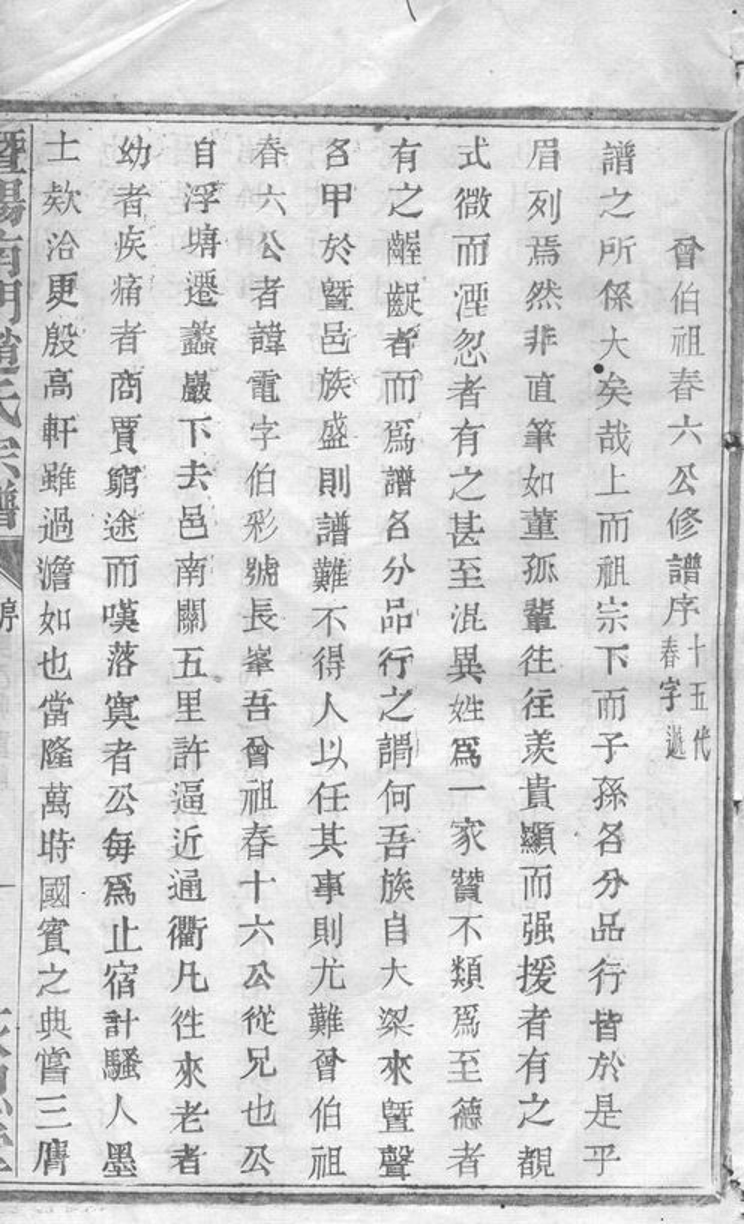 曾伯祖春六公修譜序 十五代 春字遜
譜之所係大矣哉上而祖宗下而子孫名分品行皆於是乎
眉列焉然非直筆如董孤輩往往羨貴顯而强援者有之覩
式微而湮忽者有之甚至混異姓爲一家贊不類爲至德者
有之齷齪者而爲譜名分品行之謂何吾族自大梁來曁聲
名甲於曁邑族盛則譜難不得人以任其事則尤難曾伯祖
春六公者諱電字伯彩號長峯吾曾祖春十六公從兄也公
自浮塘遷蠡巖下去邑南關五里許逼近通衢凡徃來老者
幼者疾痛者商賈窮途而嘆落寞者公每爲止宿計騷人墨
士欵洽更殷高軒雖過澹如也當隆萬時國賓之典嘗三膺
暨陽南門趙氏宗譜 序 一